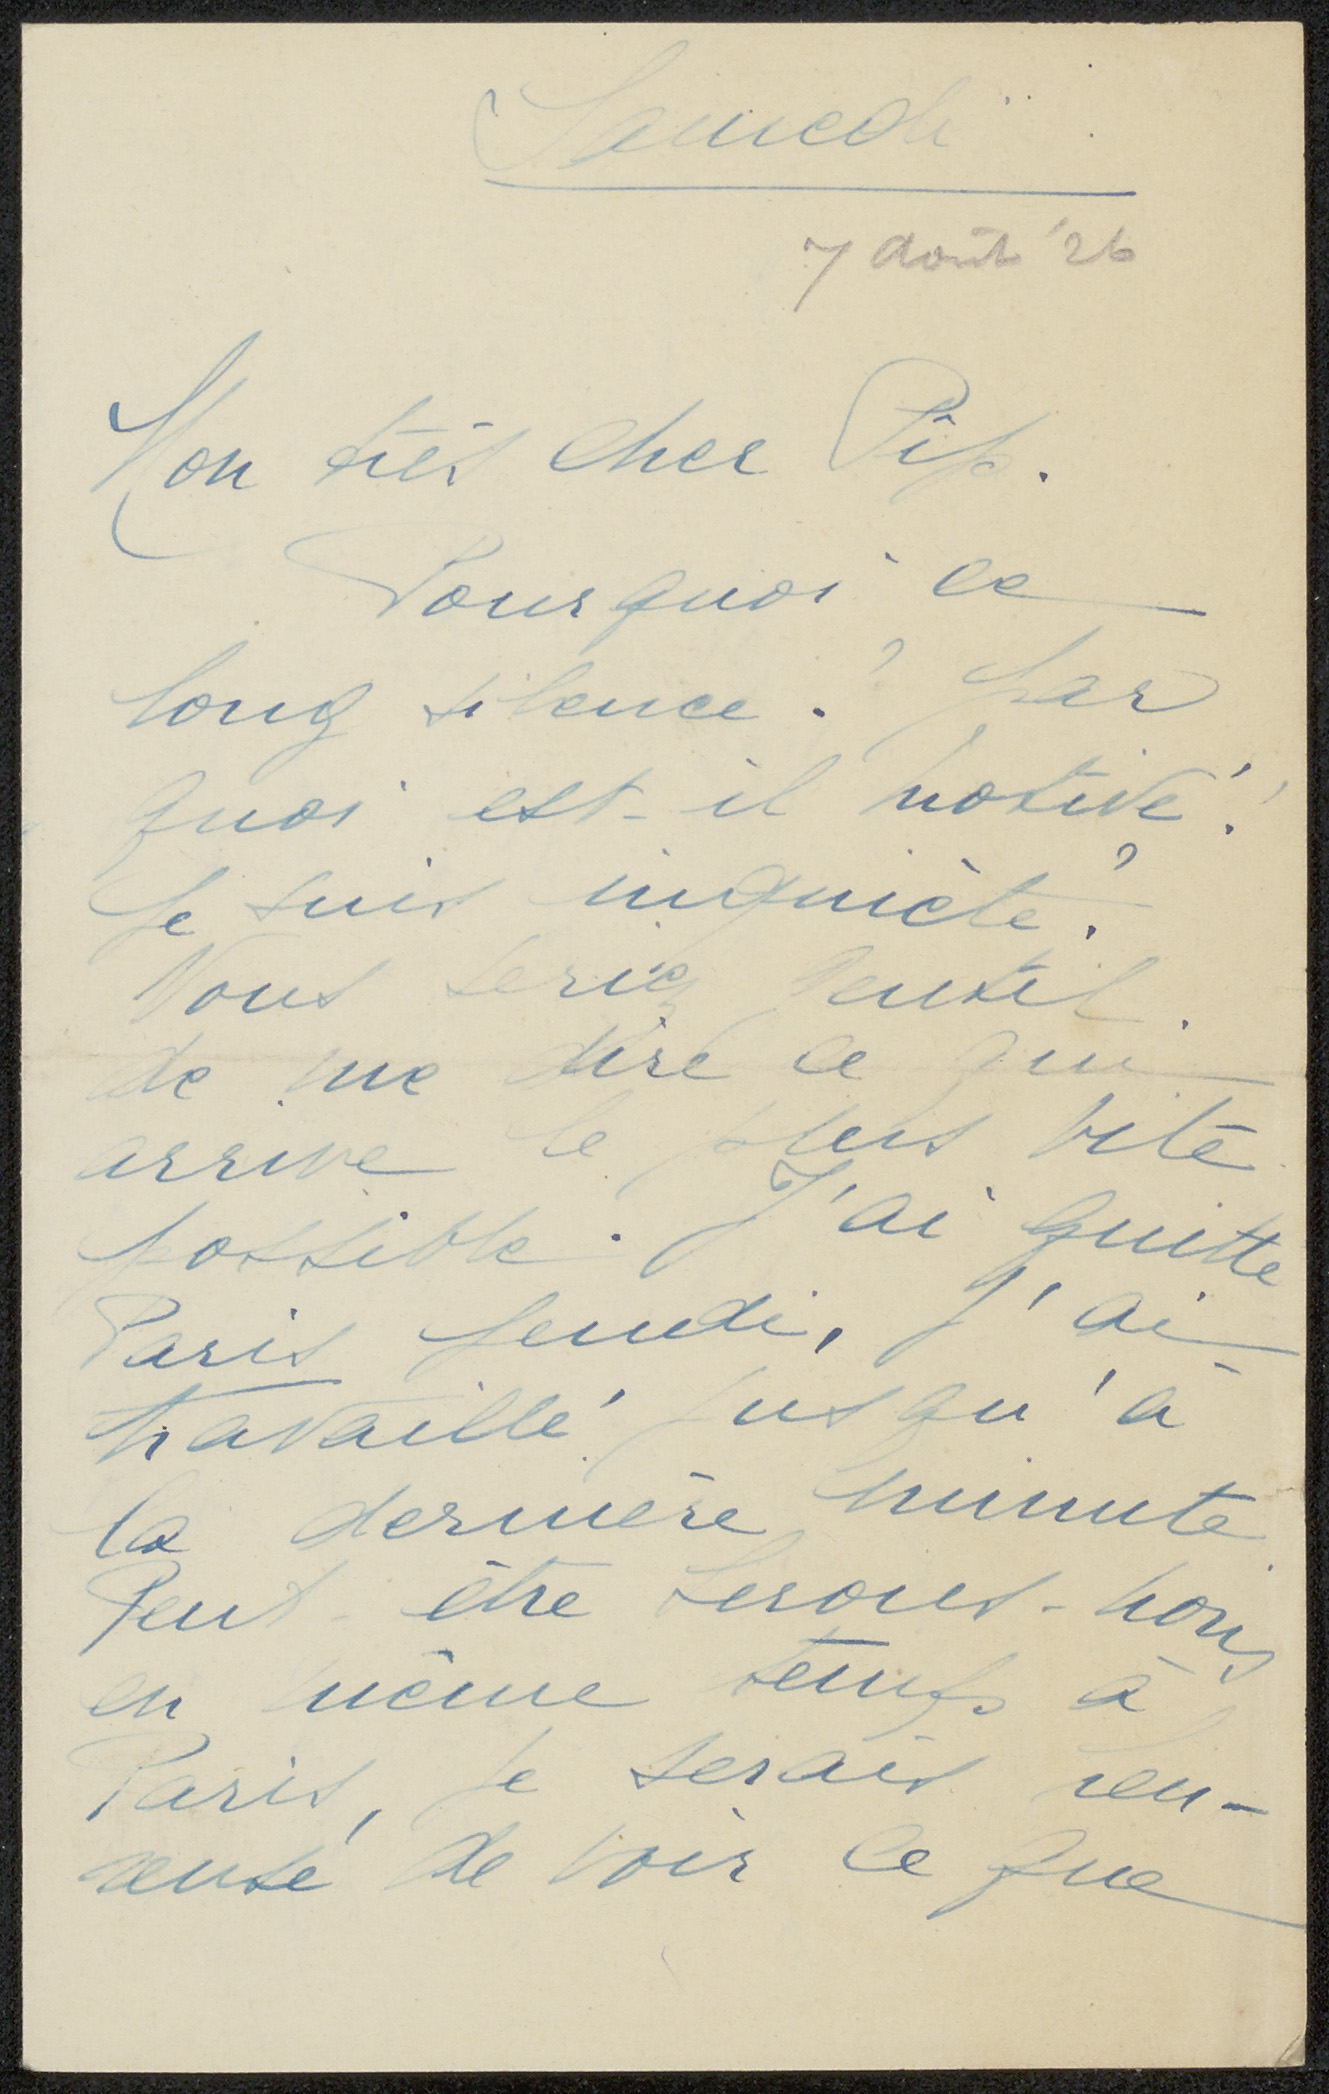 Samedi
7 août '26
Mon très cher Pip.
Pourquoi ce
long silence ? par
quoi est-il motivé !
Je suis inquiète ?
Vous seriez gentil
de me dire ce qui
arrive le plus vite
possible. J'ai quitté
Paris jeudi, j'ai
travaillé jusqu'à
la dernière minute
Peut-être serons-nous
en même temps à
Paris, je serais heu-
reuse de voir ce que